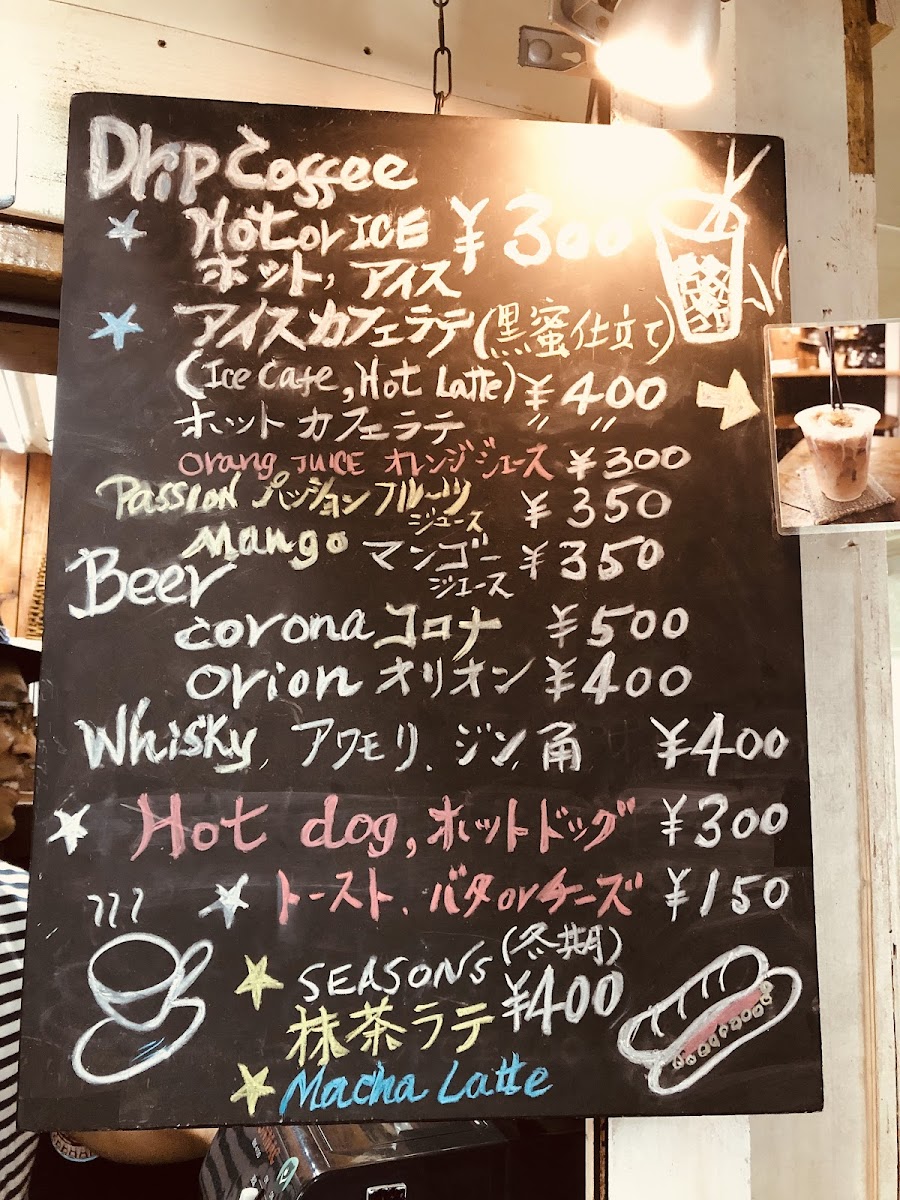 Drip Coffee
Hot or ICE ¥300
ホット, アイス
アイスカフェラテ(黒蜜仕立て)
(Ice Cafe, Hot Latte) ¥400
ホットカフェラテ 〃 〃
Orang JUICE オレンジジュース ¥300
PASSION パッションフルーツ ¥350
ジュース
Mango マンゴー ¥350
ジュース
Beer
corona コロナ ¥500
orion オリオン ¥400
Whisky, アワモリ、ジン, 角 ¥400
Hot dog, ホットドッグ ¥300
トースト、バタorチーズ ¥150
SEASONS (冬期)
抹茶ラテ ¥400
Macha Latte